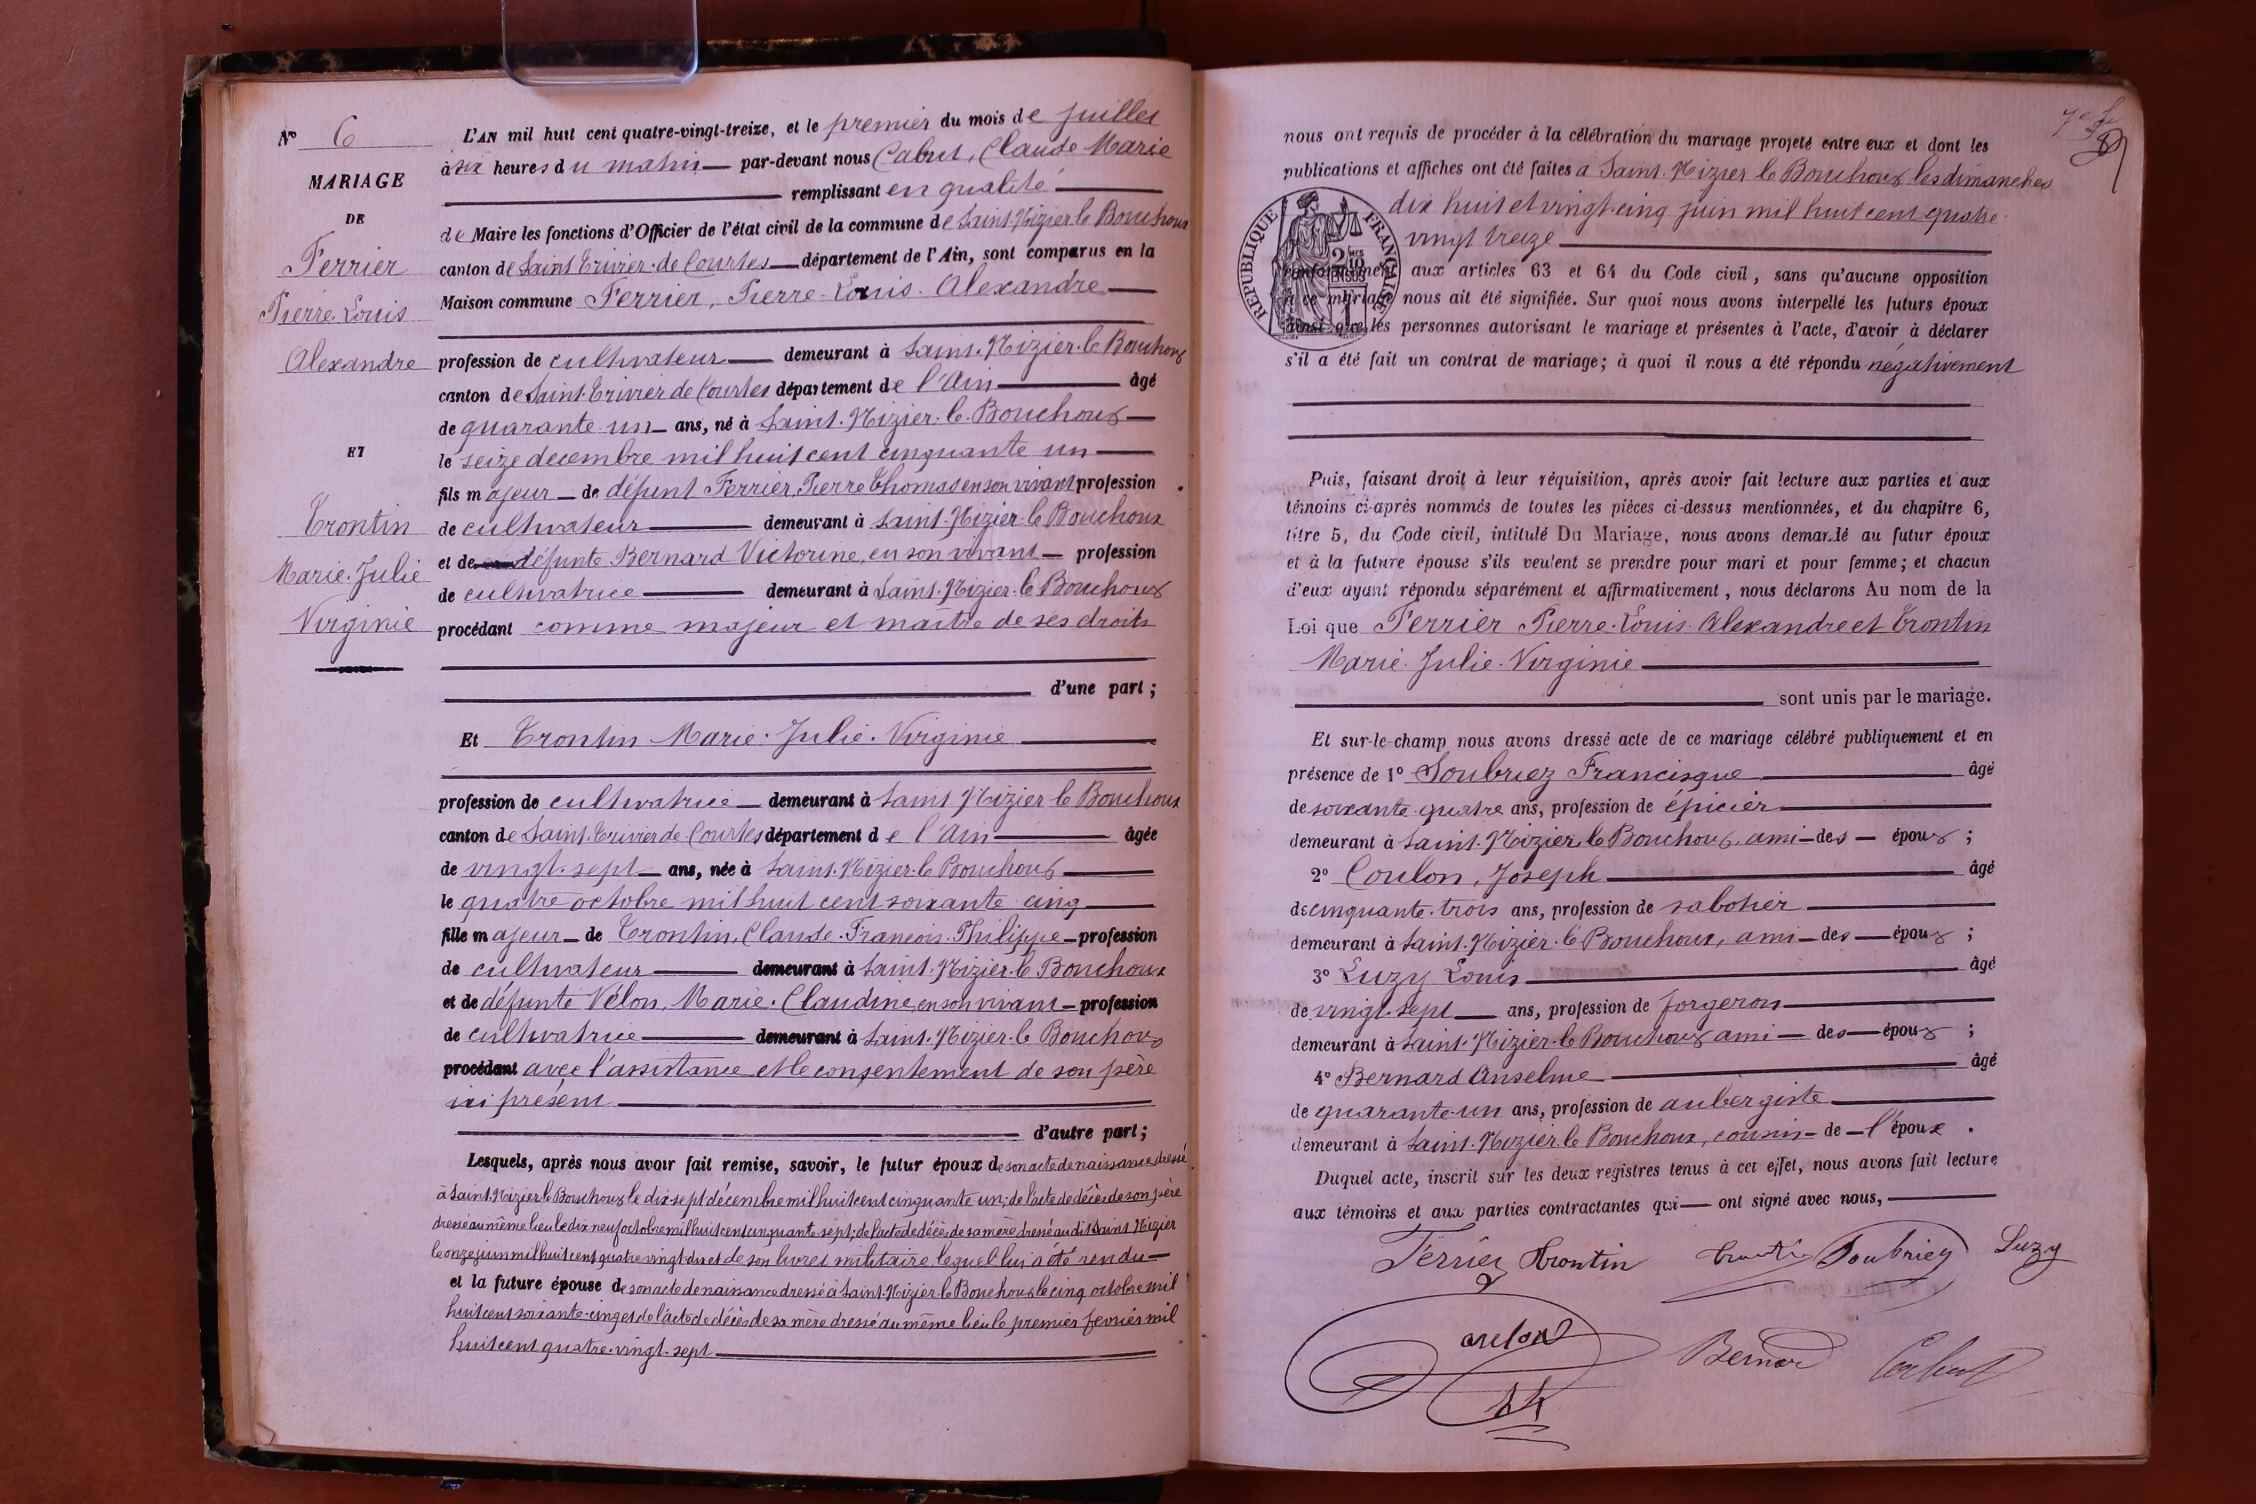 N° 6
MARIAGE
DE
Ferrier
Pierre Louis
Alexandre
ET
Trontin
Marie. Julie
Virginie
L'AN mil huit cent quatre-vingt-treize, et le premier du mois de juillet
à six heures du matin par-devant nous Cabut, Claude Marie
remplissant en qualité
de Maire les fonctions d'Officier de l'état civil de la commune de Saint-Nizier le Bouchoux
canton de Saint Trivier de Courtes département de l'Ain, sont comparus en la
Maison commune Ferrier, Pierre-Louis-Alexandre
profession de cultivateur demeurant à Saint-Nizier-le Bouchoux
canton de Saint-Trivier de Courtes département de l'Ain âgé
de quarante un ans, né à Saint-Nizier-le-Bouchoux
le seize decembre mil huit cent cinquante un
fils majeur de défunt Ferrier, Pierre Thomas en son vivant profession
de cultivateur demeurant à Saint-Nizier-le Bouchoux
et de défunte Bernard Victorine, en son vivant profession
de cultivatrice demeurant à Saint-Nizier-le Bouchoux
procédant comme majeur et maître de ses droits
d'une part ;
Et Trontin Marie. Julie. Virginie
profession de cultivatrice demeurant à Saint Nizier le Bouchoux
canton de Saint-Trivier de Courtes département de l'Ain âgée
de vingt-sept ans, née à Saint-Nizier-le Bouchoux
le quatre octobre mil huit cent soixante cinq
fille majeur de Trontin, Claude-François-Philippe profession
de cultivateur demeurant à Saint-Nizier-le Bouchoux
et de défunte Vélon, Marie. Claudine, en son vivant profession
de cultivatrice demeurant à Saint-Nizier-le Bouchoux
procédant avec l'assistance et le consentement de son père
ici présent
d'autre part ;
Lesquels, après nous avoir fait remise, savoir, le futur époux de son acte de naissance dressé
à Saint-Nizier le Bouchoux le dix-sept décembre mil huit cent cinquante un; de l'acte de décès de son père
dressé au même lieu le dix neuf octobre mil huit cent cinquante sept; de l'acte de décès de sa mère dressé audit Saint Nizier
le onze juin mil huit cent quatre vingt dix et de son livret militaire lequel lui a été rendu
et la future épouse de son acte de naissance dressé à Saint-Nizier-le Bouchoux le cinq octobre mil
huit cent soixante-cinq et de l'acte de décès de sa mère dressé au même lieu le premier fevrier mil
huit cent quatre-vingt-sept
nous ont requis de procéder à la célébration du mariage projeté entre eux et dont les
publications et affiches ont été faites à Saint-Nizier le Bouchoux les dimanches
dix huit et vingt-cinq juin mil huit cent quatre-
vingt treize
REPUBLIQUE FRANÇAISE
conformément aux articles 63 et 64 du Code civil, sans qu'aucune opposition
à ce mariage nous ait été signifiée. Sur quoi nous avons interpellé les futurs époux
ainsi que les personnes autorisant le mariage et présentes à l'acte, d'avoir à déclarer
s'il a été fait un contrat de mariage ; à quoi il nous a été répondu négativement
Puis, faisant droit à leur réquisition, après avoir fait lecture aux parties et aux
témoins ci-après nommés de toutes les pièces ci-dessus mentionnées, et du chapitre 6,
titre 5, du Code civil, intitulé Du Mariage, nous avons demandé au futur époux
et à la future épouse s'ils veulent se prendre pour mari et pour femme ; et chacun
d'eux ayant répondu séparément et affirmativement, nous déclarons Au nom de la
Loi que Ferrier Pierre-Louis-Alexandre et Trontin
Marie. Julie. Virginie
sont unis par le mariage.
Et sur-le-champ nous avons dressé acte de ce mariage célébré publiquement et en
présence de 1° Soubriez Francisque âgé
de soixante-quatre ans, profession de épicier
demeurant à Saint-Nizier-le Bouchoux, ami des époux ;
2° Coulon, Joseph âgé
de cinquante-trois ans, profession de sabotier
demeurant à Saint-Nizier-le Bouchoux, ami des époux ;
3° Luzy Louis âgé
de vingt-sept ans, profession de forgeron
demeurant à Saint-Nizier-le Bouchoux ami des époux ;
4° Bernard Anselme âgé
de quarante-un ans, profession de aubergiste
demeurant à Saint-Nizier-le Bouchoux, cousin de l'époux.
Duquel acte, inscrit sur les deux registres tenus à cet effet, nous avons fait lecture
aux témoins et aux parties contractantes qui ont signé avec nous,
Ferrier Trontin Trontin Soubriez Luzy
Coulon Bernard Cabut